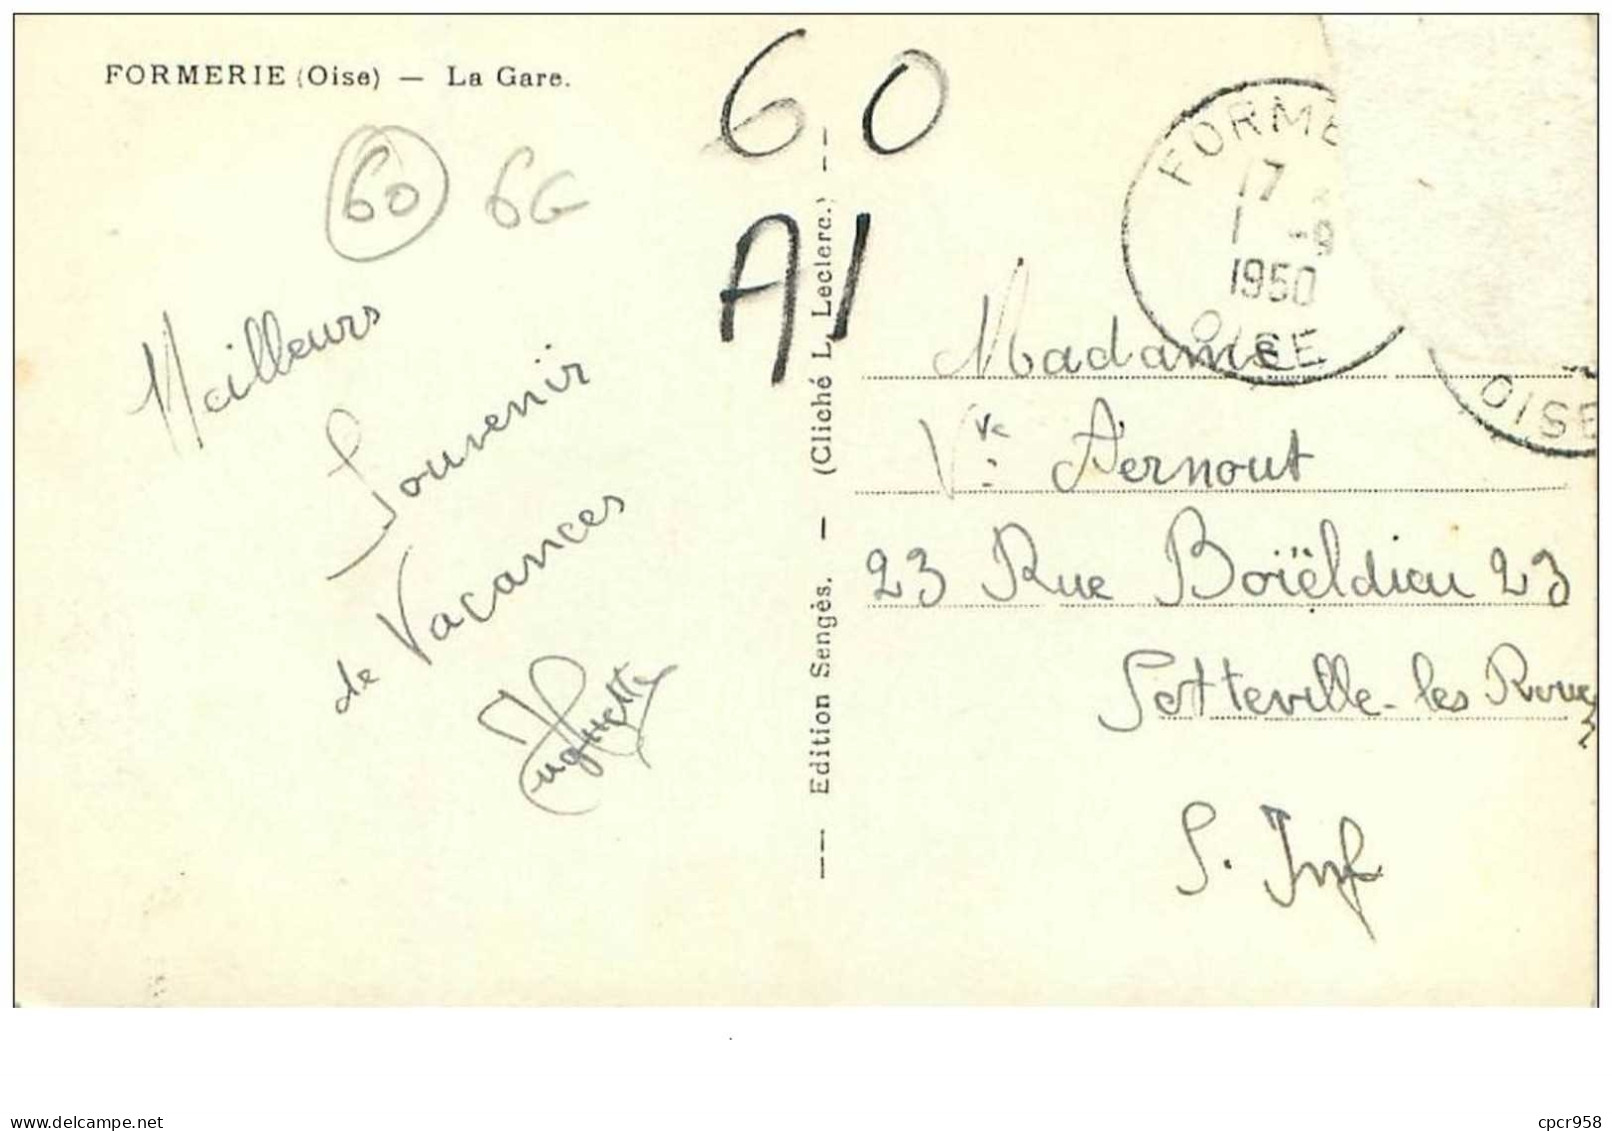 FORMERIE (Oise) — La Gare.
60
6G
60
A1
Meilleurs
Souvenir
de Vacances
Huguette
— Edition Sengès. — (Cliché L. Leclerc.) —
FORME
17
1 -9
1950
OISE
OISE
Madame
Vve Pernout
23 Rue Boïëldieu 23
Sotteville-les Rouen
S. Inf
www.delcampe.net
cpcr958